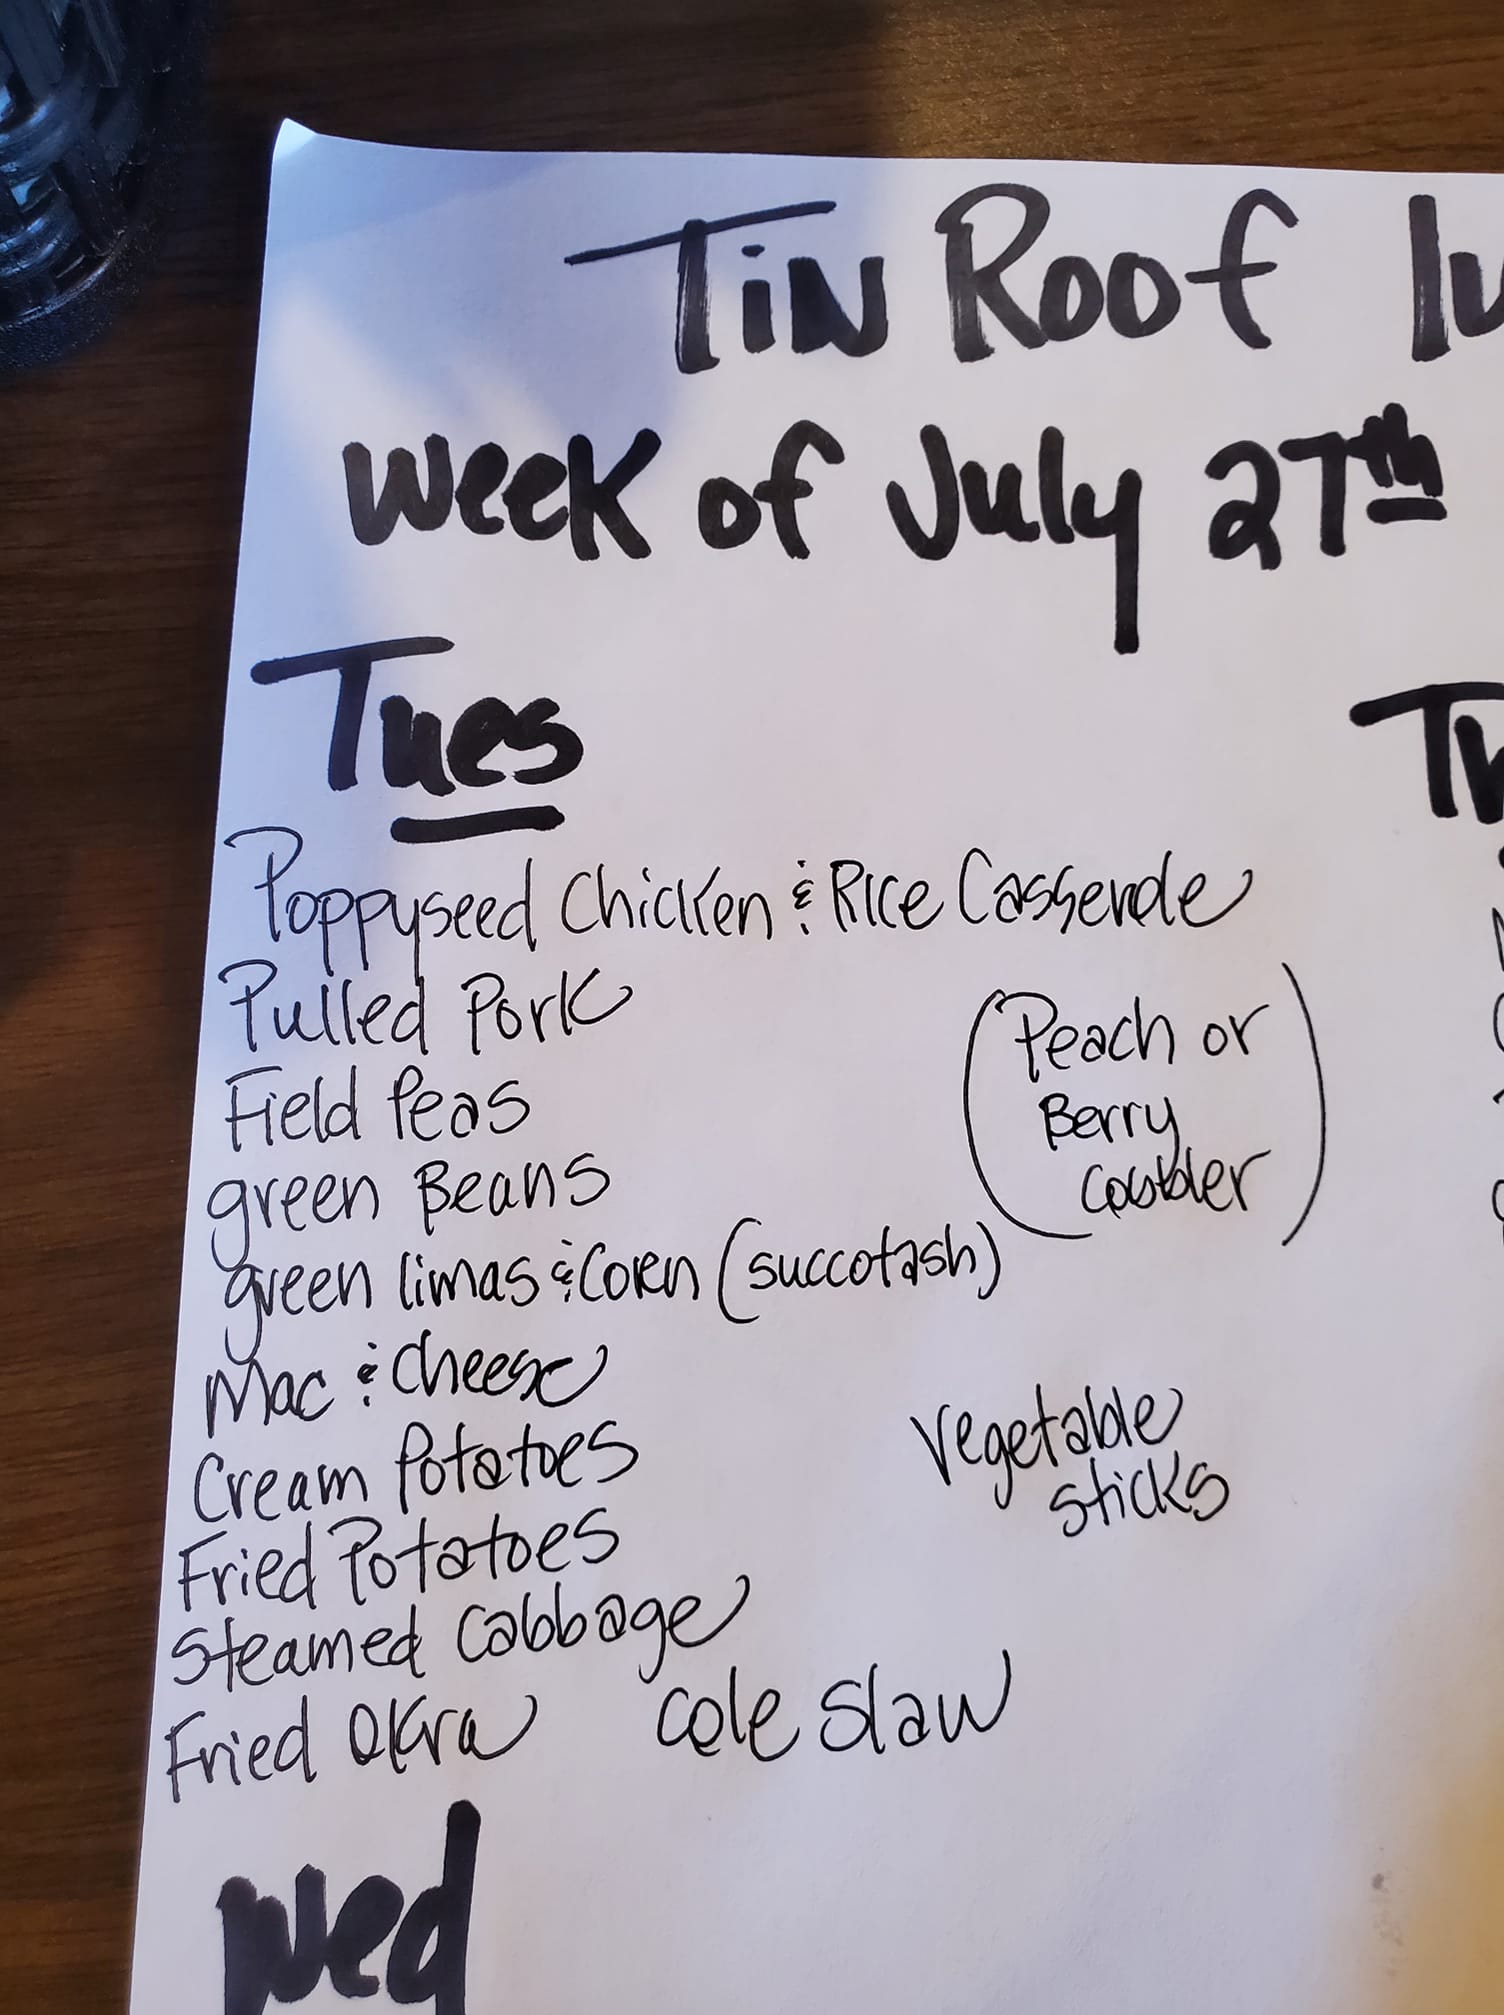 Tin Roof lu
Week of July 27th
Tues
Poppyseed Chicken & Rice Casserole
Pulled Pork
Field Peas
green Beans
green limas & Corn (succotash)
Mac & Cheese
Cream Potatoes
Fried Potatoes
Steamed Cabbage
Fried Okra
Cole Slaw
(Peach or
Berry
Cobbler)
Vegetable
Sticks
Wed